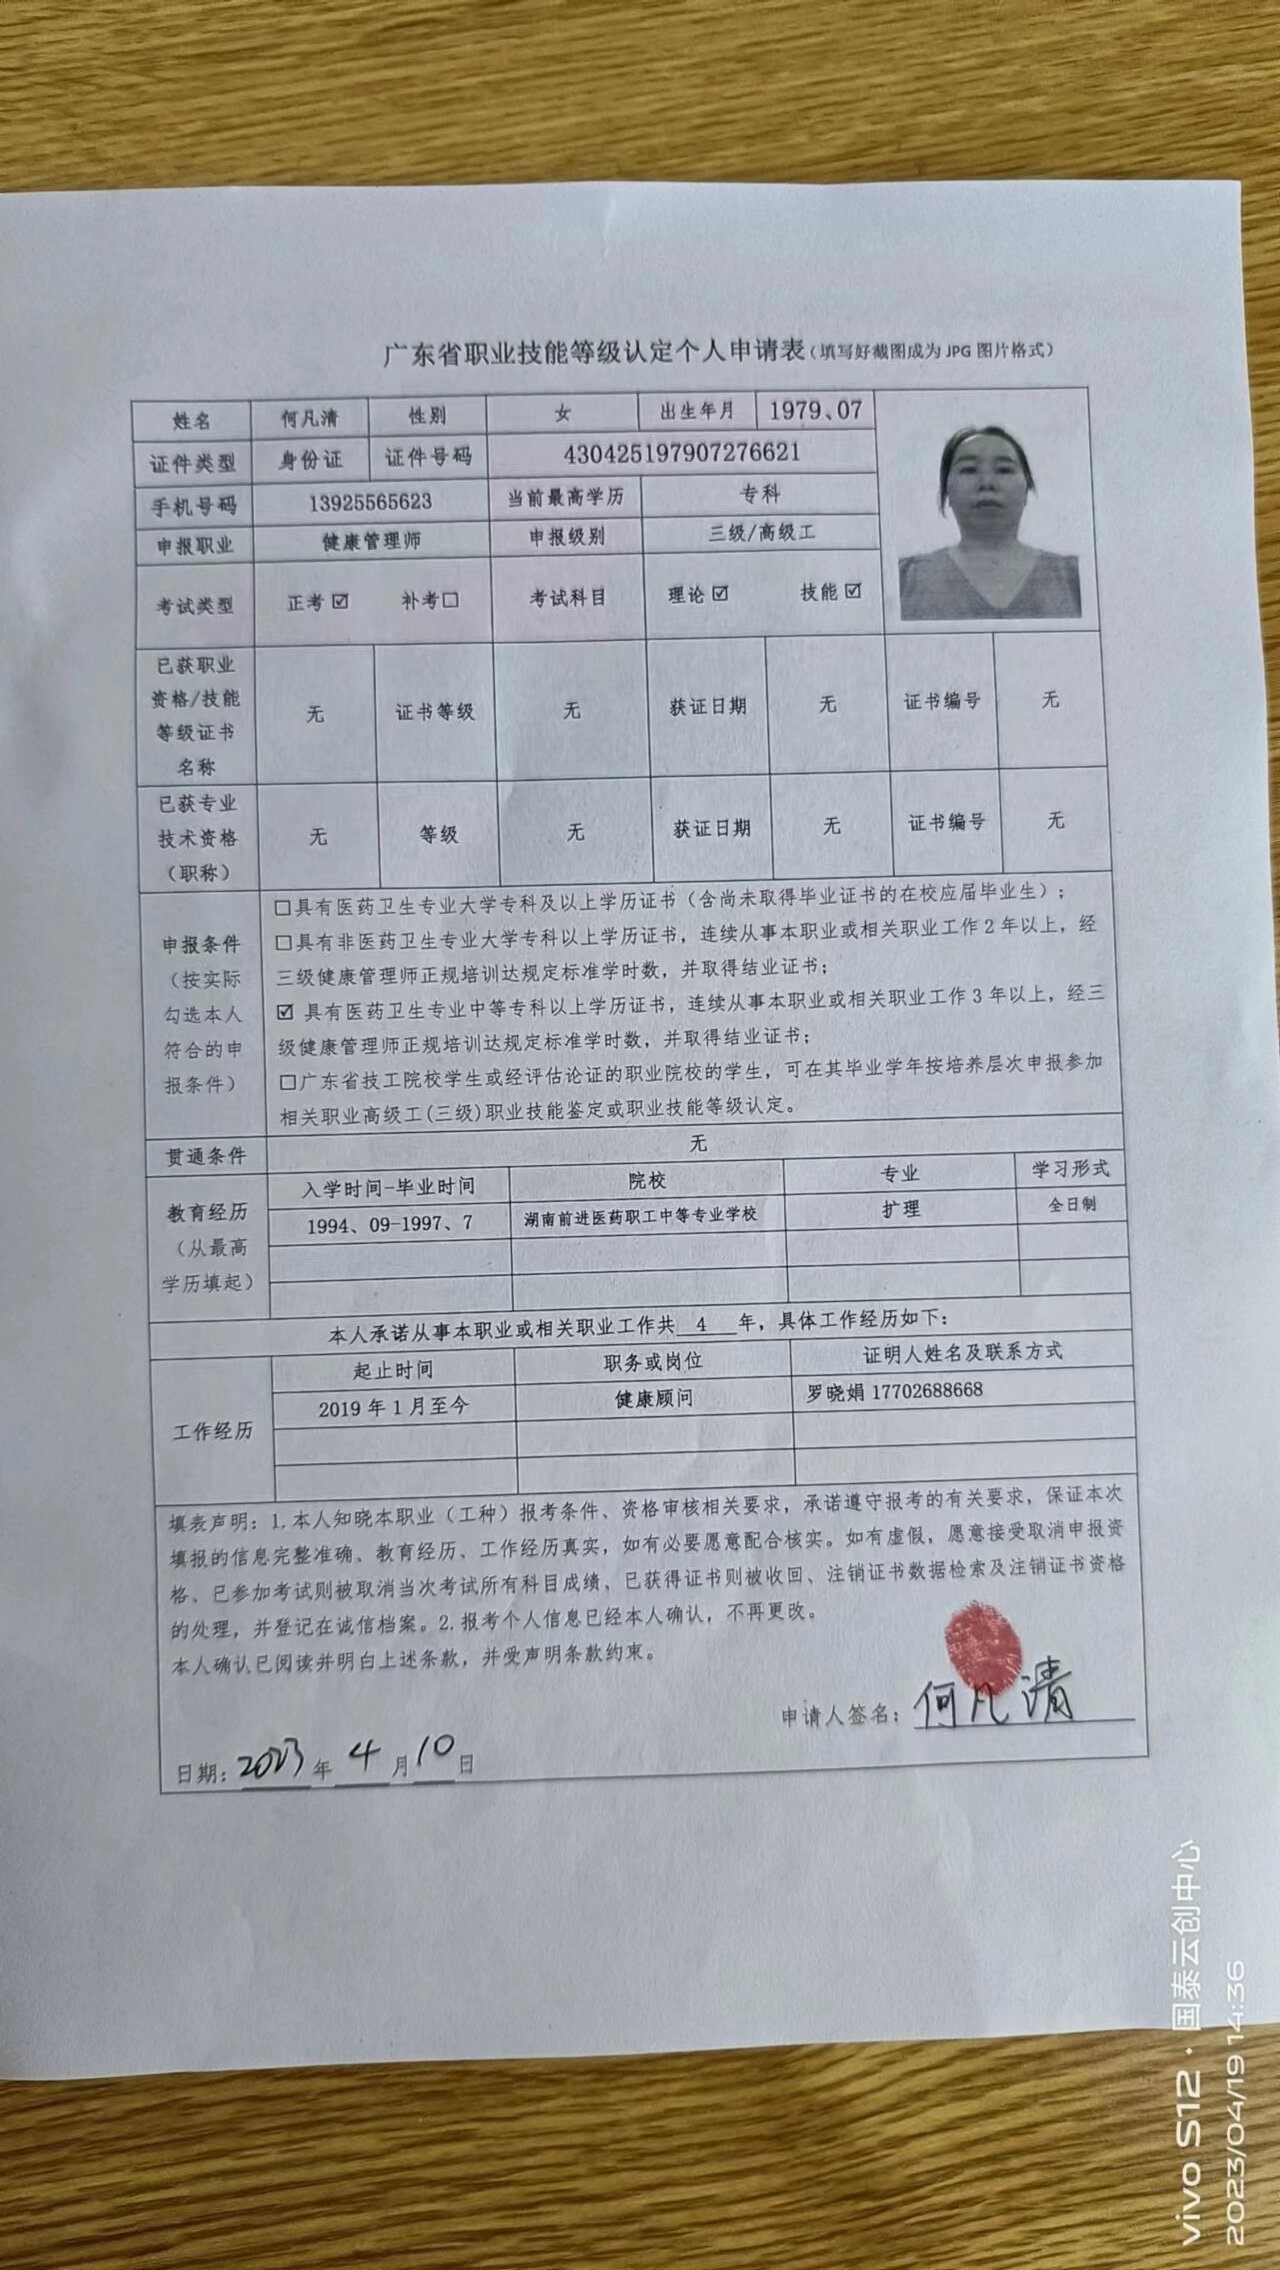 广东省职业技能等级认定个人申请表（填写好截图成为 JPG 图片格式）
姓名 何凡清 性别 女 出生年月 1979、07
证件类型 身份证 证件号码 430425197907276621
手机号码 13925565623 当前最高学历 专科
申报职业 健康管理师 申报级别 三级/高级工
考试类型 正考☑ 补考☐ 考试科目 理论☑ 技能☑
已获职业
资格/技能
等级证书
名称
无 证书等级 无 获证日期 无 证书编号 无
已获专业
技术资格
（职称）
无 等级 无 获证日期 无 证书编号 无
申报条件
（按实际
勾选本人
符合的申
报条件）
☐具有医药卫生专业大学专科及以上学历证书（含尚未取得毕业证书的在校应届毕业生）；
☐具有非医药卫生专业大学专科以上学历证书，连续从事本职业或相关职业工作2年以上，经
三级健康管理师正规培训达规定标准学时数，并取得结业证书；
☑ 具有医药卫生专业中等专科以上学历证书，连续从事本职业或相关职业工作3年以上，经三
级健康管理师正规培训达规定标准学时数，并取得结业证书；
☐广东省技工院校学生或经评估论证的职业院校的学生，可在其毕业学年按培养层次申报参加
相关职业高级工(三级)职业技能鉴定或职业技能等级认定。
贯通条件 无
教育经历
（从最高
学历填起）
入学时间-毕业时间 院校 专业 学习形式
1994、09-1997、7 湖南前进医药职工中等专业学校 扩理 全日制
本人承诺从事本职业或相关职业工作共 4 年，具体工作经历如下：
工作经历
起止时间 职务或岗位 证明人姓名及联系方式
2019年1月至今 健康顾问 罗晓娟 17702688668
填表声明：1.本人知晓本职业（工种）报考条件、资格审核相关要求，承诺遵守报考的有关要求，保证本次
填报的信息完整准确、教育经历、工作经历真实，如有必要愿意配合核实。如有虚假，愿意接受取消申报资
格、已参加考试则被取消当次考试所有科目成绩、已获得证书则被收回、注销证书数据检索及注销证书资格
的处理，并登记在诚信档案。2.报考个人信息已经本人确认，不再更改。
本人确认已阅读并明白上述条款，并受声明条款约束。
申请人签名：何凡清
日期：2023年4月10日
vivo S12 · 国泰云创中心
2023/04/19 14:36